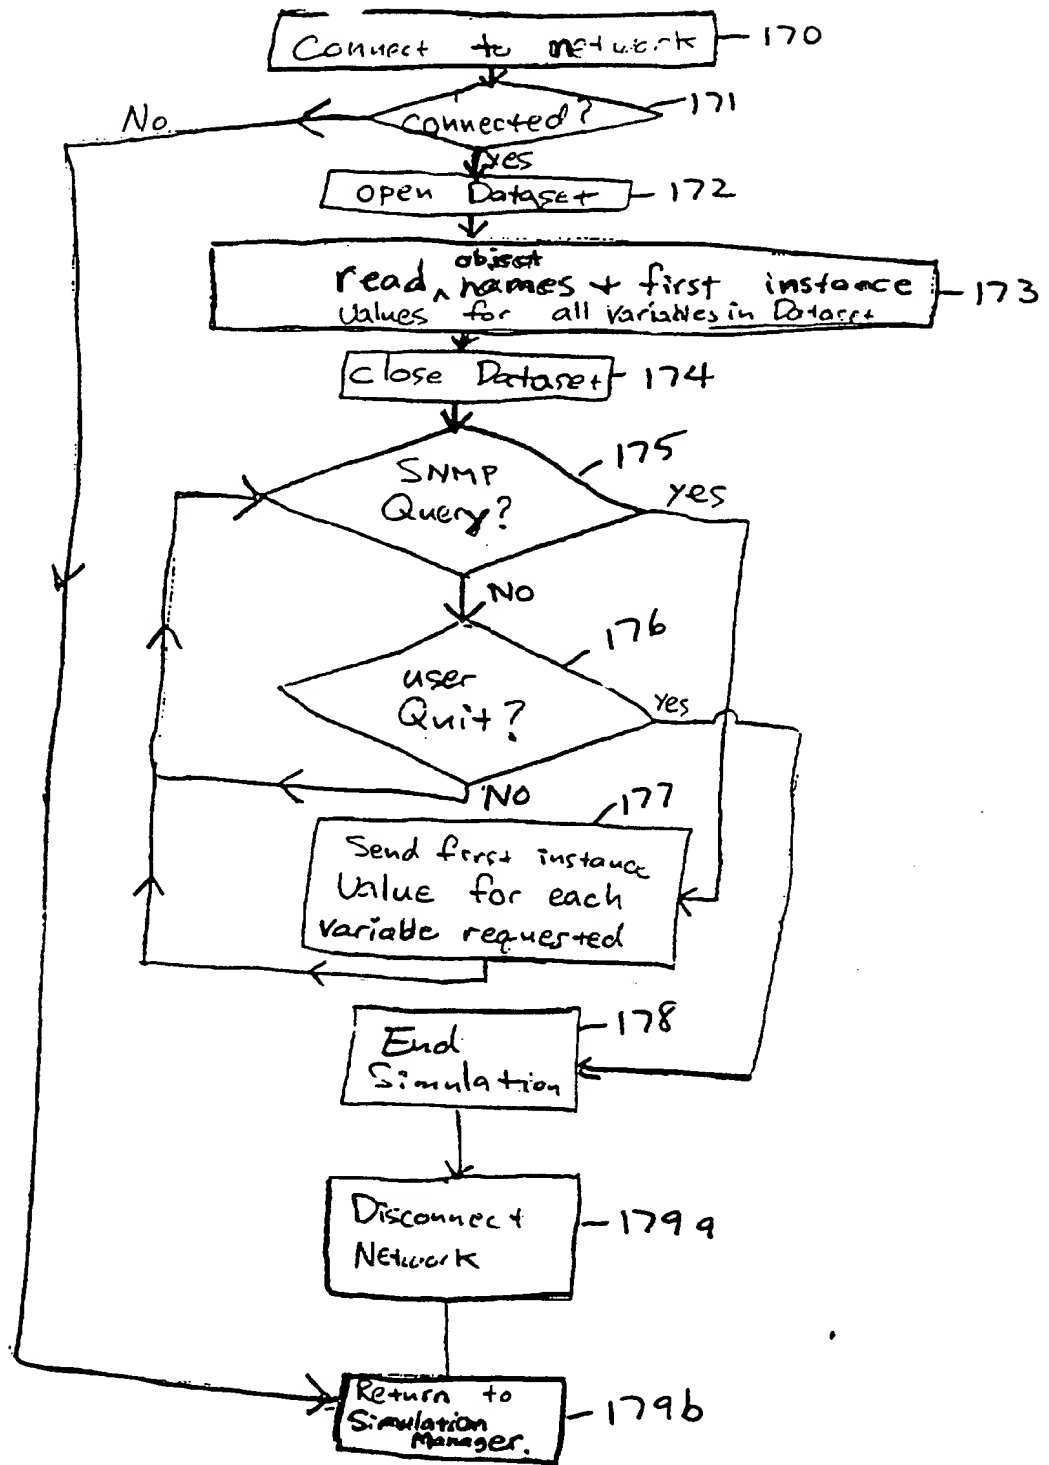 Connect to network
170
connected?
171
No
yes
open Dataset
172
object
read ^ names + first instance
Values for all variables in Dataset
173
close Dataset
174
SNMP
Query?
175
yes
NO
176
user
Quit?
Yes
NO
177
Send first instance
Value for each
variable requested
End
Simulation
178
Disconnect
Network
179a
Return to
Simulation
Manager.
179b